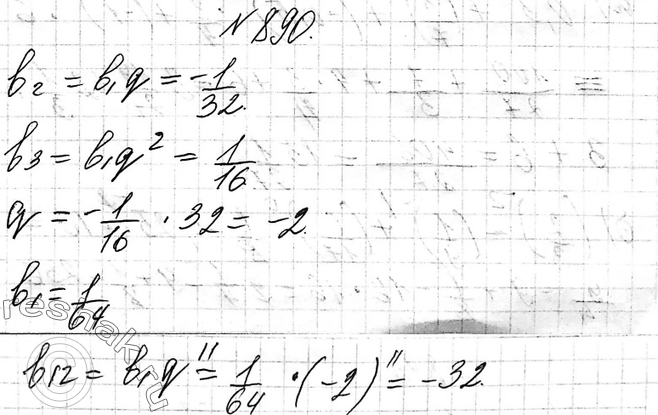 №890.
b₂ = b₁q = -1/32
b₃ = b₁q² = 1/16
q = -1/16 · 32 = -2
b₁ = 1/64
b₁₂ = b₁q¹¹ = 1/64 · (-2)¹¹ = -32.
reshak.ru